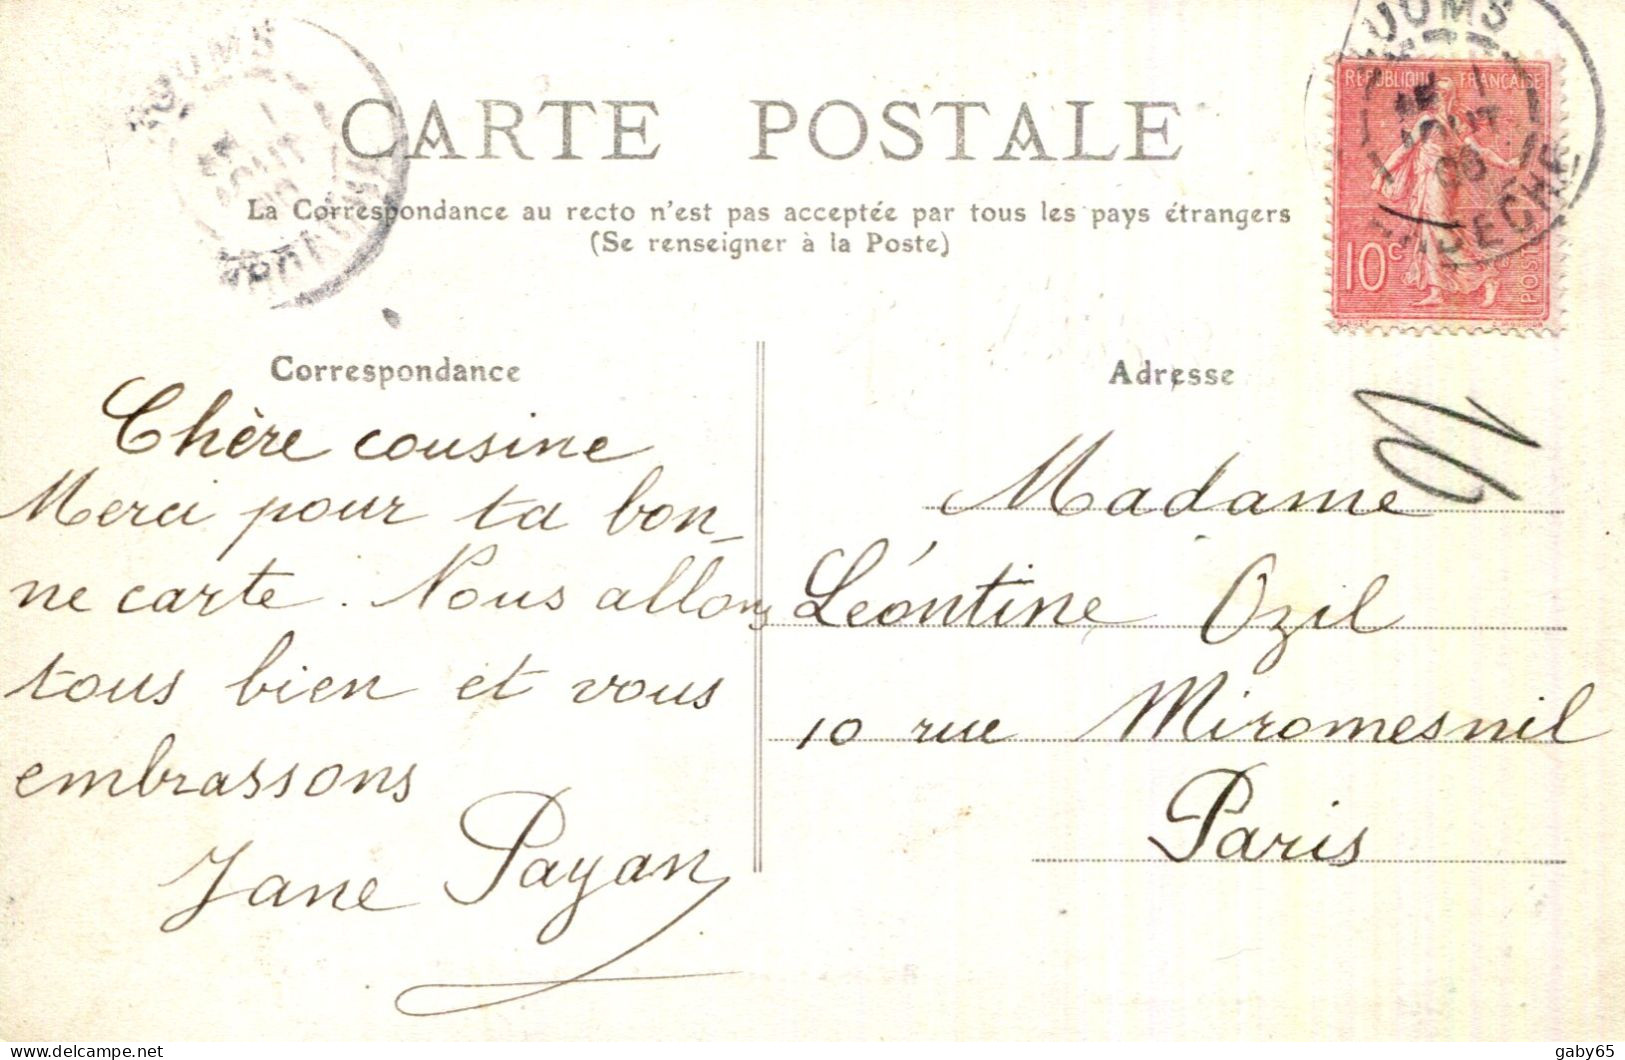 CARTE POSTALE
La Correspondance au recto n'est pas acceptée par tous les pays étrangers
(Se renseigner à la Poste)
RÉPUBLIQUE FRANÇAISE
AOUT
06
10c
POSTES
Correspondance
Chère cousine
Merci pour ta bon-
ne carte. Nous allons
tous bien et vous
embrassons
Jane Payan
Adresse
Madame
Léontine Ozil
10 rue Miromesnil
Paris
gaby65